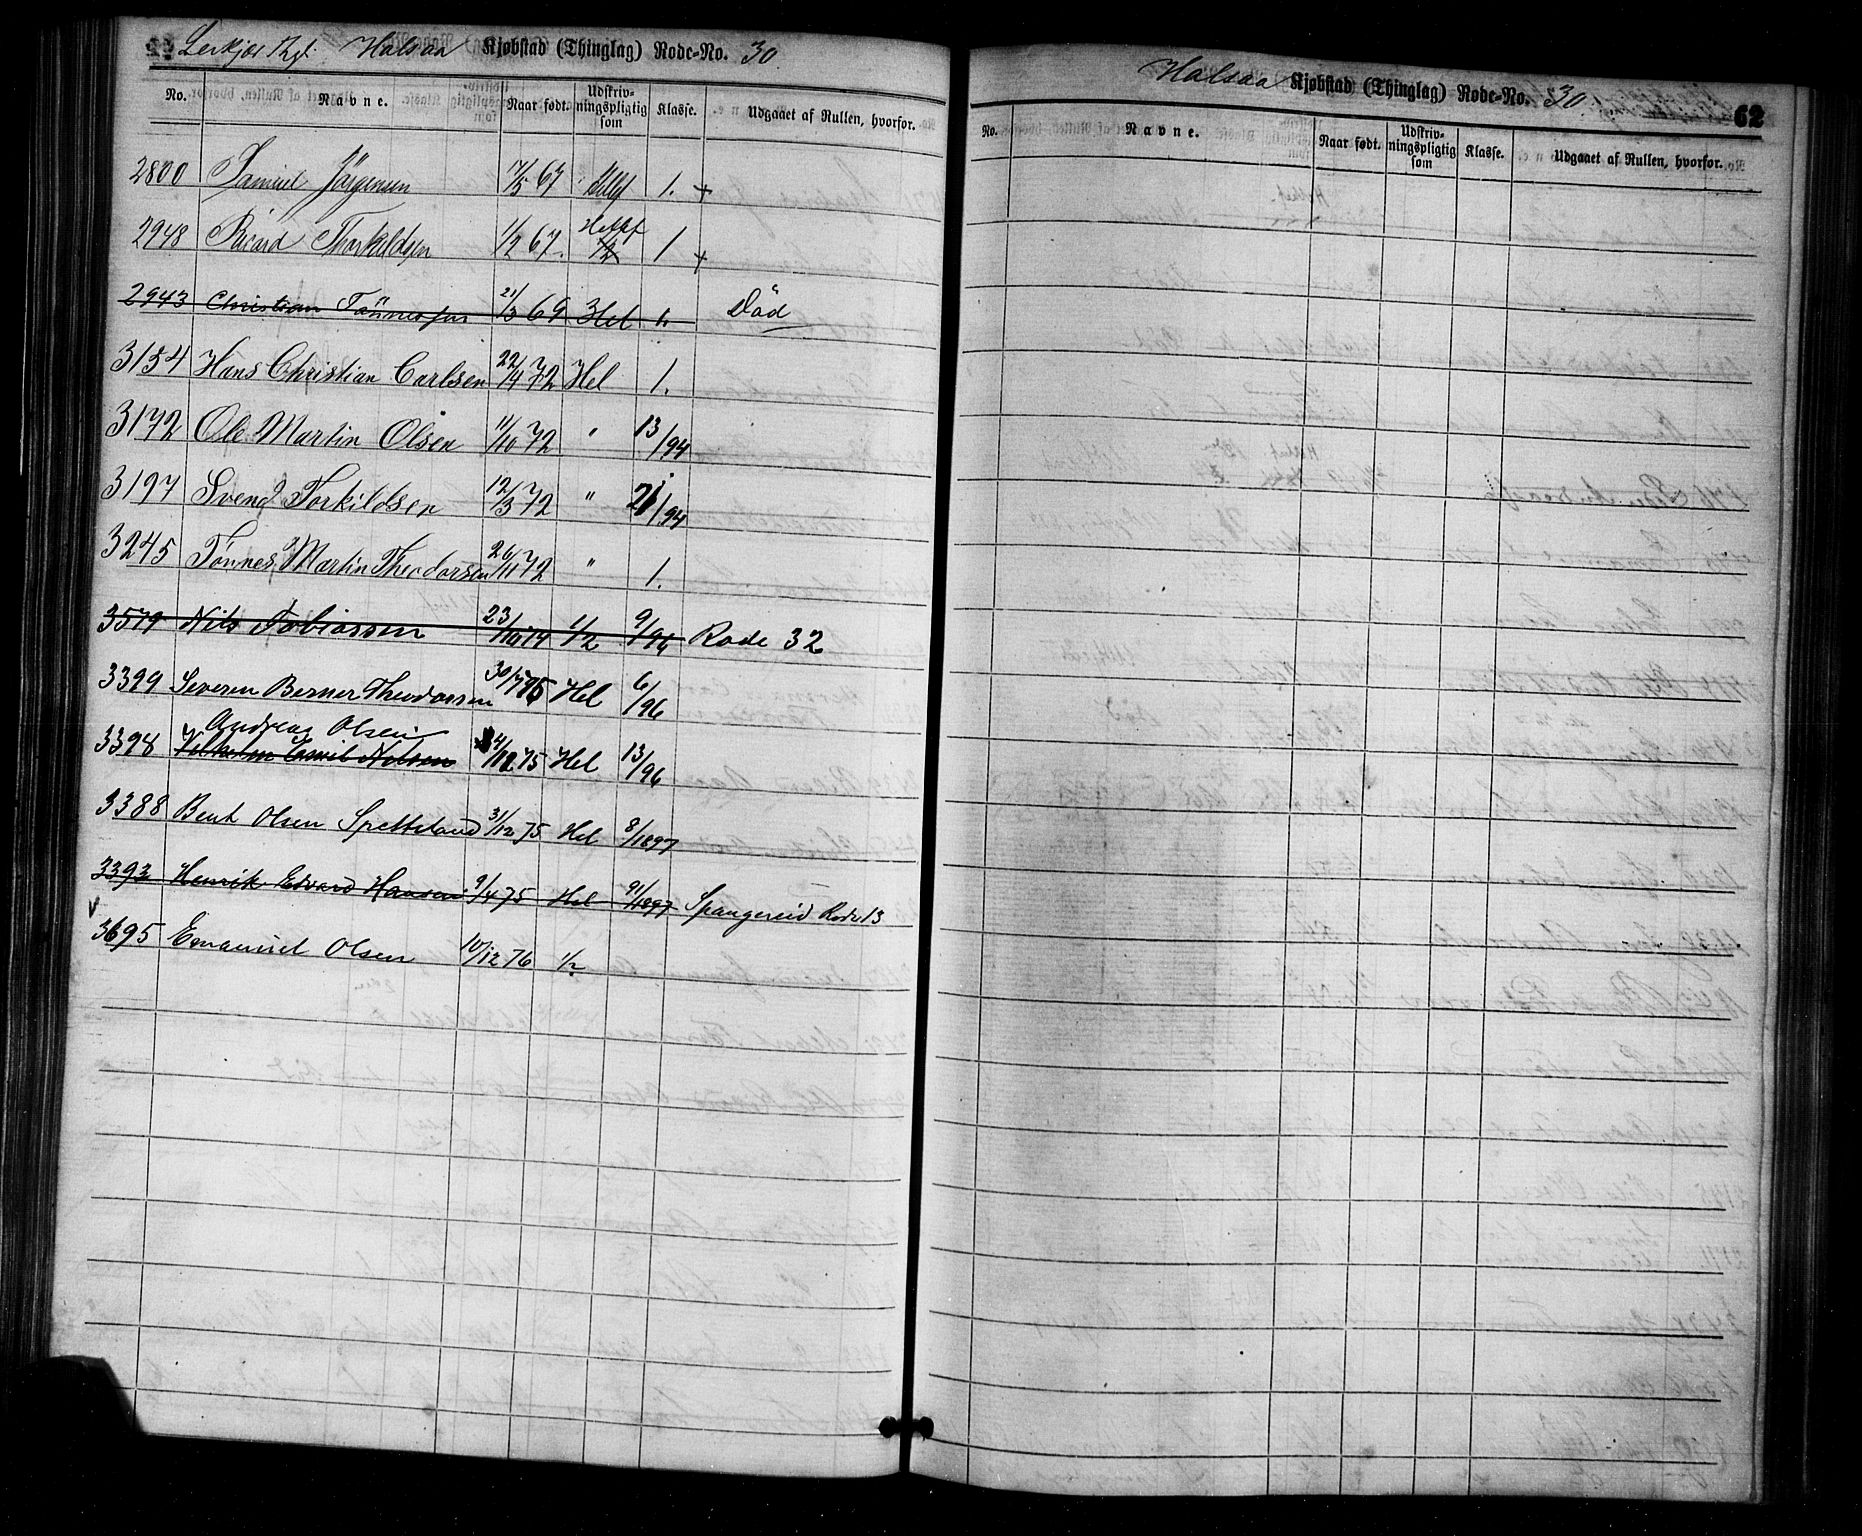 Halsaa Kjøbstad (Thinglag) Rode-No. 30
No. Navne. Naar født. Udskrivningspligtig som Klasse. Udgaaet af Rullen, hvorfor.
2800 Samuel Jörgensen 17/5 67 1. +
2948 Rivard Thorkildsen 1/2 67. 1/2 1 +
2943 Christian Tönnessen 21/3 69 Hel 1. Död
3154 Hans Christian Carlsen 22/4 72 Hel 1.
3172 Ole Martin Olsen 11/10 72 " 13/94
3197 Svend Torkildsen 12/3 72 " 21/94
3245 Tönnes Martin Theodorsen 26/11 72 " 1.
3579 Nils Tobiassen 23/10 74 1/2 9/96 Rode 32
3399 Severin Berner Theodorsen 30/7 75 Hel 6/96
Andreas Olsen
3394 Vilhelm Emil Nilsen 4/12 75 Hel 13/96
3388 Bent Olsen Spetteland 31/12 75 Hel 8/1897
3393 Henrik Edvard Hansen 9/4 75 Hel 9/1897 Spangereid Rode 13
V
3695 Emanuel Olsen 10/12 76 1/2
Halsaa Kjøbstad (Thinglag) Rode-No. 30 62
No. Navne. Naar født. Udskrivningspligtig som Klasse. Udgaaet af Rullen, hvorfor.